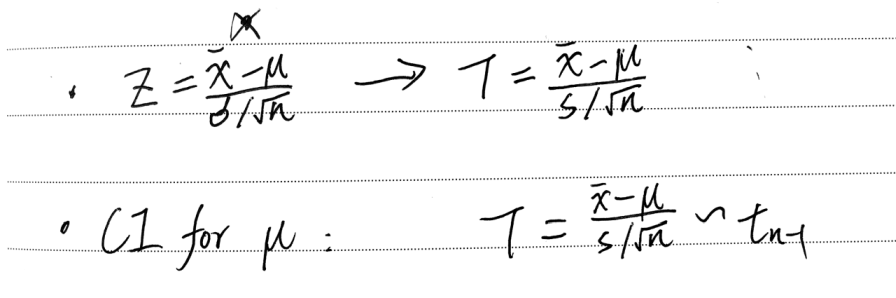 · Z = (x̄-μ)/(σ/√n) → T = (x̄-μ)/(s/√n)
· CI for μ : T = (x̄-μ)/(s/√n) ~ tₙ₋₁